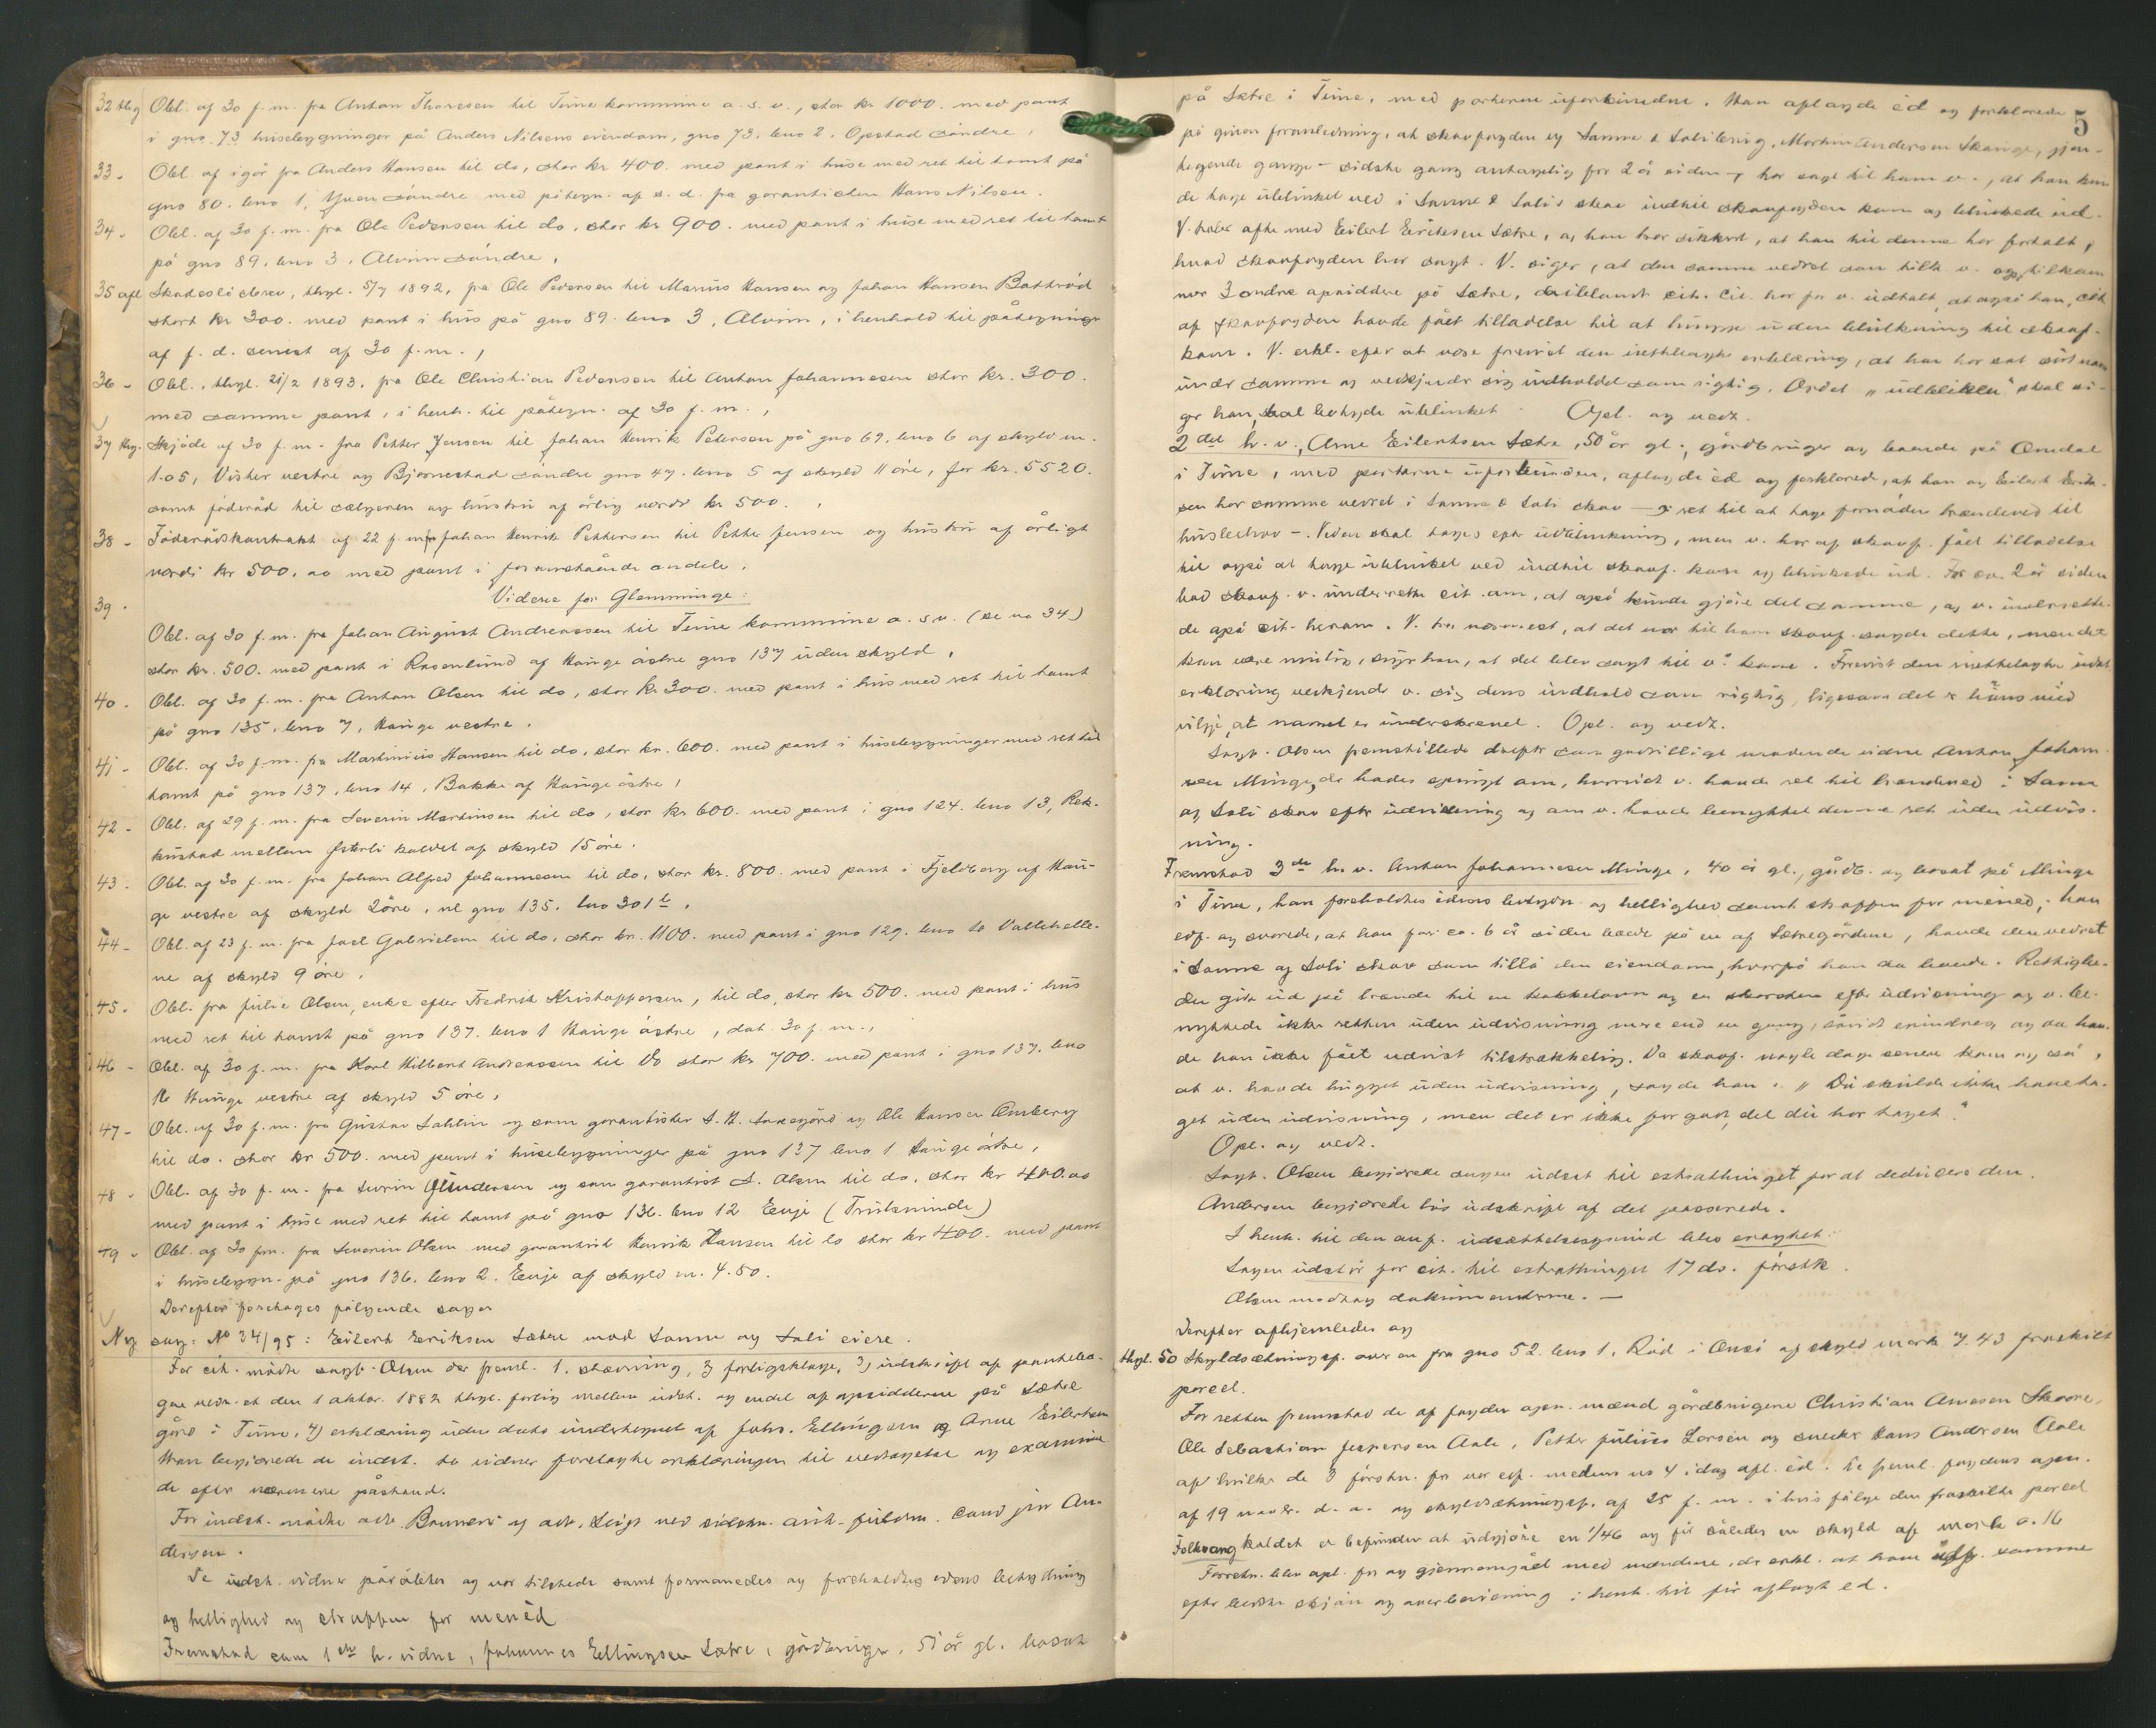 32 thlg Obl. af 30 f.m. fra Anton Thoresen til Tune kommune a.s.v., stor kr 1000. med pant
i gno 73 husebygninger på Anders Nilsens eiendom, gno 73. bno 2. Opstad søndre,
33 - Obl. af igår fra Anders Hansen til do, stor kr 400. med pant i huse med ret til tomt på
gno 80. bno 1, søndre med påtegn. af s.d. fra garantisten Hans Nilsen.
34 - Obl. af 30 f.m. fra Ole Pedersen til do, stor kr 900. med pant i huse med ret til tomt
på gno 89. bno 3, Alvim søndre,
35 afl Skadesløsbrev, thgl. 5/7 1892, fra Ole Pedersen til Marius Hansen og Johan Hansen
stort kr 300. med pant i hus på gno 89. bno 3, Alvim, i henhold til påtegninger
af f.d. senest af 30 f.m.,
36 - Obl., thgl. 21/2 1893, fra Ole Christian Pedersen til Anton Johannesen stor kr. 300.
med samme pant, i henh. til påtegn. af 30 f.m.,
37 thg. Skjøde af 30 f.m. fra Petter Jensen til Johan Henrik Petersen på gno 69. bno 6 af skyld m.
1.05, Visther vestre og Bjørnestad søndre gno 47. bno 5 af skyld 11 øre, for kr. 5520.
samt føderåd til sælgeren og hustru af årlig værdi kr 500.,
38 - Føderådskontrakt af 22 f.m. fra Johan Henrik Pettersen til Petter Jensen og hustru af årligt
værdi kr 500.00 med pant i foranstående andele.
Videre for Glemminge:
39 - Obl. af 30 f.m. fra Johan August Andreassen til Tune kommune a.s.v. (se no 34)
stor kr. 500. med pant i Rosenlund af Hauge østre gno 137 uden skyld,
40 - Obl. af 30 f.m. fra Anton Olsen til do, stor kr 300. med pant i hus med ret til tomt
på gno 135. bno 7, Hauge vestre.
41 - Obl. af 30 f.m. fra Martinius Hansen til do, stor kr. 600. med pant i husebygninger med ret til
tomt på gno 137, bno 14, Bakke af Hauge østre,
42 - Obl. af 29 f.m. fra Severin Martinsen til do, stor kr 600. med pant i gno 124. bno 13, Rek-
kustad mellem kaldet af skyld 15 øre.
43 - Obl. af 30 f.m. fra Johan Alfred Johannesen til do, stor kr. 800. med pant i Fjeldborg af Hau-
ge vestre af skyld 2 øre, gno 135. bno 30
44 - Obl. af 23 f.m. fra Joel Gabrielsen til do, stor kr. 1100. med pant i gno 129. bno 10
ne af skyld 9 øre,
45 - Obl. fra Julie Olsen, enke efter Fredrik Kristoffersen, til do, stor kr 500. med pant i hus
med ret til tomt på gno 137. bno 1 Hauge østre, dat. 30 f.m.,
46 - Obl. af 30 f.m. fra Karl Hilbert Andreassen til do stor kr 700. med pant i gno 137. bno
Hauge vestre af skyld 5 øre,
47 - Obl. af 30 f.m. fra Gustav Sahlin og som garantister og Ole Hansen Omberg
til do. stor kr 500. med pant i husebygninger på gno 137 bno 1 Hauge østre,
48 - Obl. af 30 f.m. fra Gundersen og som garantist S. Olsen til do. stor kr 400.00
med pant i huse med ret til tomt på gno 136. bno 12 Evje (Trulsminde)
49 - Obl. af 30 f.m. fra Severin Olsen med garantist Henrik Hansen til do stor kr 400. med pant
i husebygn. på gno 136. bno 2. Evje af skyld m. 4.50.
Derefter foretages følgende sager
Ny sag: No 34/95: Eilert Eriksen Sætre mod Sanne og Soli eiere.
For cit. mødte sagf. Olsen der freml. 1. stævning, 2) forligsklage, 3) udskrift af pantebø-
gene vedr. et den 1 oktbr. 1882 thgl. forlig mellem indst. og endel af opsidderne på Sætre
gård i Tune, 4) erklæring uden dato undertegnet af Johs. Ellingsen og Arne Eilertsen
Han begjærede de indst. to vidner forelagte erklæringen til vedtagelse og examine
de efter nærmere påstand.
For indst. mødte adv. og adv. Leigs ved sidstn. aut. fuldm. cand jur An-
dersen.
De indst. vidner påråbtes og var tilstede samt formanedes og foreholdtes edens betydning
og hellighed og straffen for mened
Fremstod som 1ste h. vidne, Johannes Ellingsen Sætre, gårdbruger, 51 år gl. bosat
5
på Sætre i Tune, med parterne uforbunden. Han aflagde ed og forklarede
på given foranledning, at skovfogden og Sanne & Soli brug, Martin Andersen Skauge, gjen-
tagende gange – sidste gang antagelig for 2 år siden – har sagt til ham v., at han kun
de tage ublinket ved i Sanne & Soli's skov indtil skovfogden kom og blinkede ud.
V. taler ofte med Eilert Eriksen Sætre, og han tror sikkert, at han til denne har fortalt,
hvad skovfogden har sagt. V. siger, at den samme vedret som tilk. v. også tilkom-
mer 3 andre opsiddere på Sætre, deriblandt cit. Cit. har for v. udtalt, at også han, cit.
af skovfogden havde fået tilladelse til at hugge uden blinkning til skovf.
kom. V. erkl. efter at være forevist den irettelagte erklæring, at han har sat sit navn
under samme og vedkjender sig indholdet som rigtig. Ordet „udblikke" skal si-
ger han, skal betyde ublinket. Opl. og vedt.
2det h.v., Arne Eilertsen Sætre, 50 år gl., gårdbruger og boende på Omdal
i Tune, med parterne uforbunden, aflagde ed og forklarede, at han og Eilert Erik-
sen har samme vedret i Sanne & Soli skov – ret til at tage fornøden brændeved til
husbehov –. Veden skal tages efter udblinkning, men v. har af skovf. fået tilladelse
til også at hugge ublinket ved indtil skovf. kom og blinkede ud. For ca. 2 år siden
bad skovf. v. underrette cit. om, at også kunde gjøre det samme, og v. underrette-
de også cit. herom. V. tror nærmest, at det var til ham skovf. sagde dette, men det
kan være mulig, siger han, at det blev sagt til v.s kone. Forevist den irettelagte
erklæring vedkjender v. sig dens indhold som rigtig, ligesom det er hans med
vilje, at navnet er underskrevet. Opl. og vedt.
Sagf. Olsen fremstillede derefter som godvilligt mødende vidne Anton Johan-
sen Minge, der bades spurgt om, hvorvidt v. havde ret til brændeved i Sanne
og Soli skov efter udvisning og om v. havde benyttet denne ret uden udvis-
ning.
Fremstod 3de h.v. Anton Johannesen Minge, 40 år gl., gårdb. og bosat på Minge
i Tune, han foreholdtes edens betydn. og hellighed samt straffen for mened; han
edf. og svarede, at han for ca. 6 år siden boede på en af Sætregårdene, havde den vedret
i Sanne og Soli skov som tillå den eiendom, hvorpå han da boede. Rettighe-
den gik ud på brænde til en kakkelovn og en skorsten efter udvisning og v. be-
nyttede ikke retten uden udvisning mere end en gang, såvidt erindres og da hav-
de han ikke fået udvist tilstrækkelig. Da skovf. nogle dage senere kom og så,
at v. havde hugget uden udvisning, sagde han: „Du skulde ikke have ta-
get uden udvisning, men det er ikke for godt, det du har taget."
Opl. og vedt.
Sagf. Olsen begjærede sagen udsat til extrathinget for at deducere den.
Andersen begjærede lov udskrift af det passerede.
I henh. til den anf. udsættelsesgrund blev eragtet:
Sagen udstår for cit. til extrathinget 17 ds. førstk.
Olsen modtog dokumenterne. —
Derefter afhjemledes og
thgl. 50 Skyldsætningsf. over en fra gno 52. bno 1. Råd i Onsø af skyld mark 7.43 fraskilt
parcel.
For retten fremstod de af fogden opn. mænd gårdbrugerne Christian Amosen Skaare,
Ole Sebastian Jespersen Aale, Petter Julius Larsen og snedker Hans Andersen Aale
af hvilke de 3 førstn. for var edf. medens no 4 idag afl. ed. De freml. fogdens opn.
af 19 novbr. d.a. og skyldsætningsf. af 25 f.m. i hvis følge den fraskilte parcel
Folkvang kaldet er befunden at udgjøre en 1/46 og får således en skyld af mark 0.16
Forretn. blev opl. for og gjennemgået med mændene, de erkl. at have udf. samme
efter bedste skjøn og overbevisning i henh. til før aflagt ed.